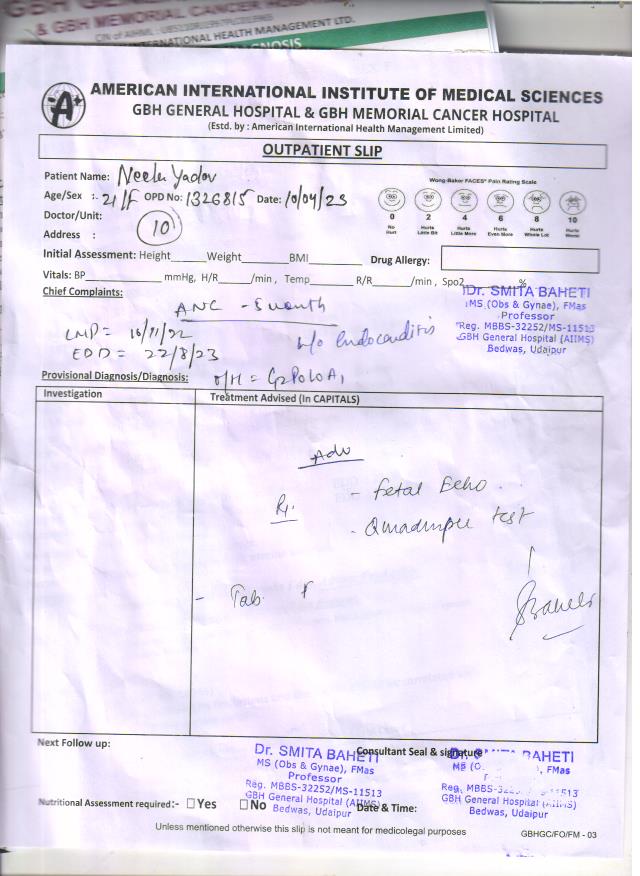 GBH GENERAL
& GBH MEMORIAL CANCER HOSPITAL
INTERNATIONAL HEALTH MANAGEMENT LTD.
AMERICAN INTERNATIONAL INSTITUTE OF MEDICAL SCIENCES
GBH GENERAL HOSPITAL & GBH MEMORIAL CANCER HOSPITAL
(Estd. by : American International Health Management Limited)
OUTPATIENT SLIP
Patient Name: Neetu Yadav
Wong-Baker FACES® Pain Rating Scale
Age/Sex :. 21/F OPD No: 1326815 Date: 10/04/23
0 2 4 6 8 10
No Hurt Hurts Little Bit Hurts Little More Hurts Even More Hurts Whole Lot Hurts Worst
Doctor/Unit:
10
Address :
Initial Assessment: Height Weight BMI Drug Allergy:
Vitals: BP mmHg, H/R /min , Temp R/R /min , Spo2 %
Chief Complaints:
Dr. SMITA BAHETI
MS (Obs & Gynae), FMas
Professor
Reg. MBBS-32252/MS-11513
GBH General Hospital (AIIMS)
Bedwas, Udaipur
ANC - 5 month
LMP = 16/11/22
H/o Endocarditis
EDD = 22/8/23
Provisional Diagnosis/Diagnosis: O/H = G2P0L0A1
Investigation Treatment Advised (In CAPITALS)
Adv
Rx. - Fetal Echo
- Quadruple test
- Tab.
Next Follow up:
Consultant Seal & signature
Dr. SMITA BAHETI
MS (Obs & Gynae), FMas
Professor
Reg. MBBS-32252/MS-11513
GBH General Hospital (AIIMS)
Bedwas, Udaipur
BAHETI
FMas
11513
GBH General Hospital (AIIMS)
Bedwas, Udaipur
Nutritional Assessment required:- Yes No Date & Time:
Unless mentioned otherwise this slip is not meant for medicolegal purposes
GBHGC/FO/FM - 03